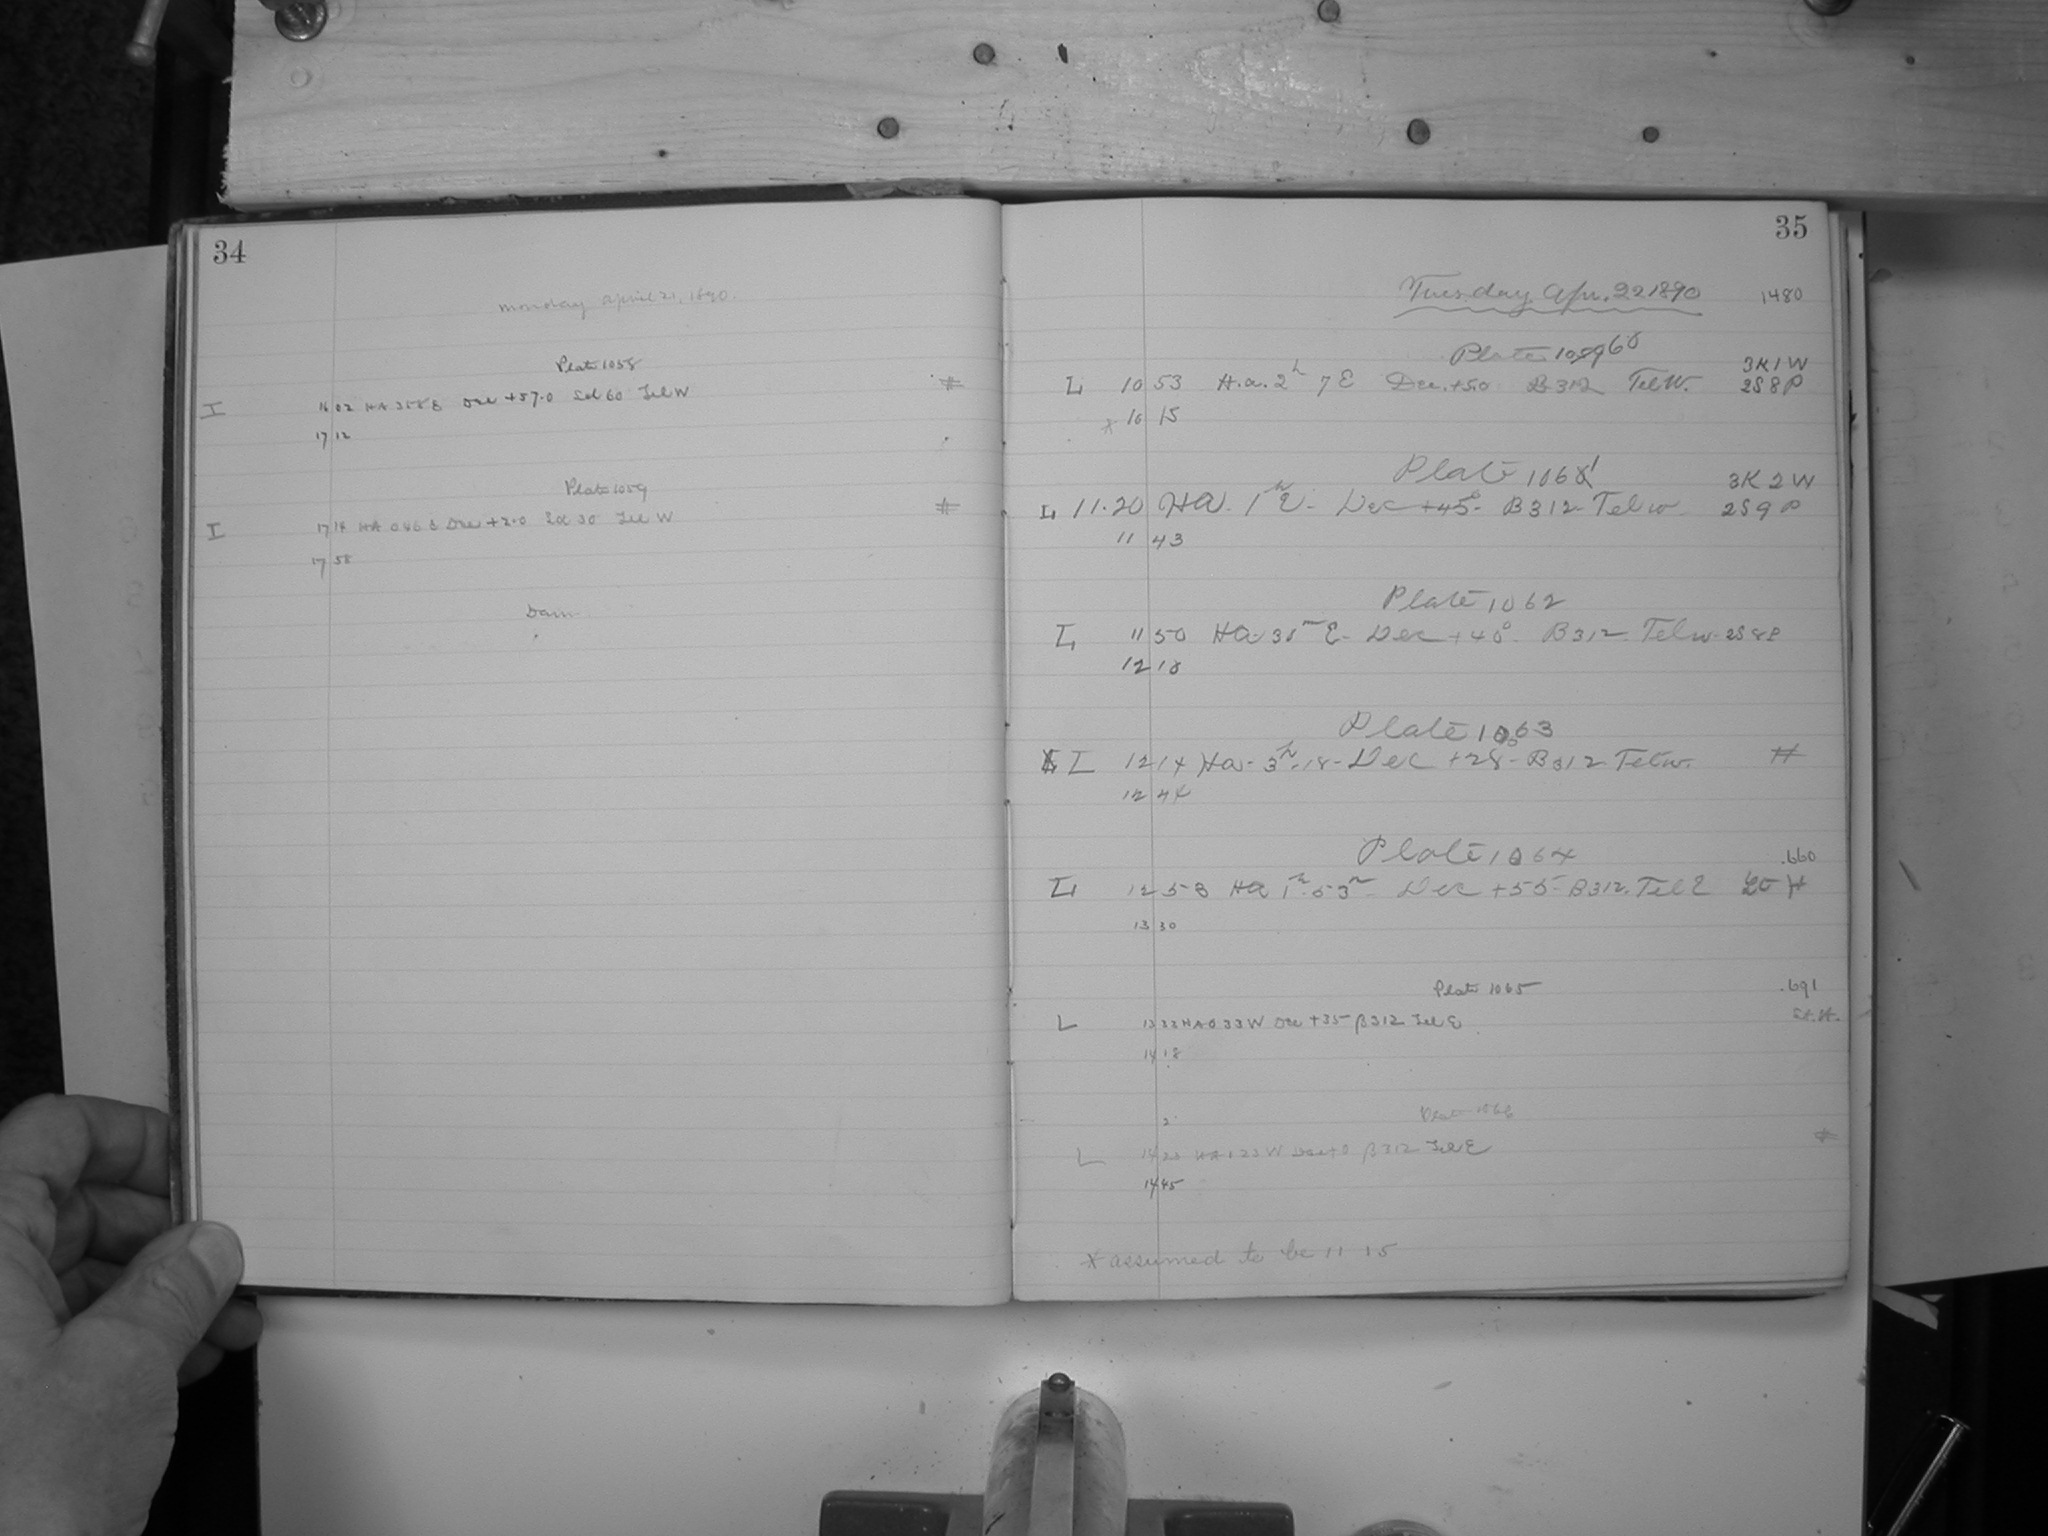 34
Monday April 21, 1890.
Plate 1058
I 16 02 HA 3 58 E Dec +57.0 Sd 60 Tel W #
17 12
Plate 1059
I 17 14 HA 0 46 E Dec +2.0 Sd 30 Tel W #
17 58
Dawn
35
Tuesday Apr. 22 1890 1480
Plate 105960
3K1W
L 10 53 H.a. 2h 7 E Dec. +50 B 312 Tel W. 2S8P
* 10 15
Plate 10601 3K2W
L 11.20 Ha. 1h E- Dec +45° B312- Tel w 2S9P
11 43
Plate 1062
L 11 50 Ha- 30m E- Dec +40° B312 Tel w- 2S8P
12 18
Plate 1063
I 12 14 Ha- 3h-18- Dec +28- B312 Tel w. #
12 44
Plate 1064 .660
L 12 58 Ha 1h-53m- Dec +55- B312. Tel E
13 30
Plate 1065 .691
L 13 33 HA 0 33 W Dec +35 B312 Tel E St.H.
14 18
2
Plate 1066
L 14 20 HA 1 23 W Dec +0 B312 Tel E #
14 45
* assumed to be 11 15